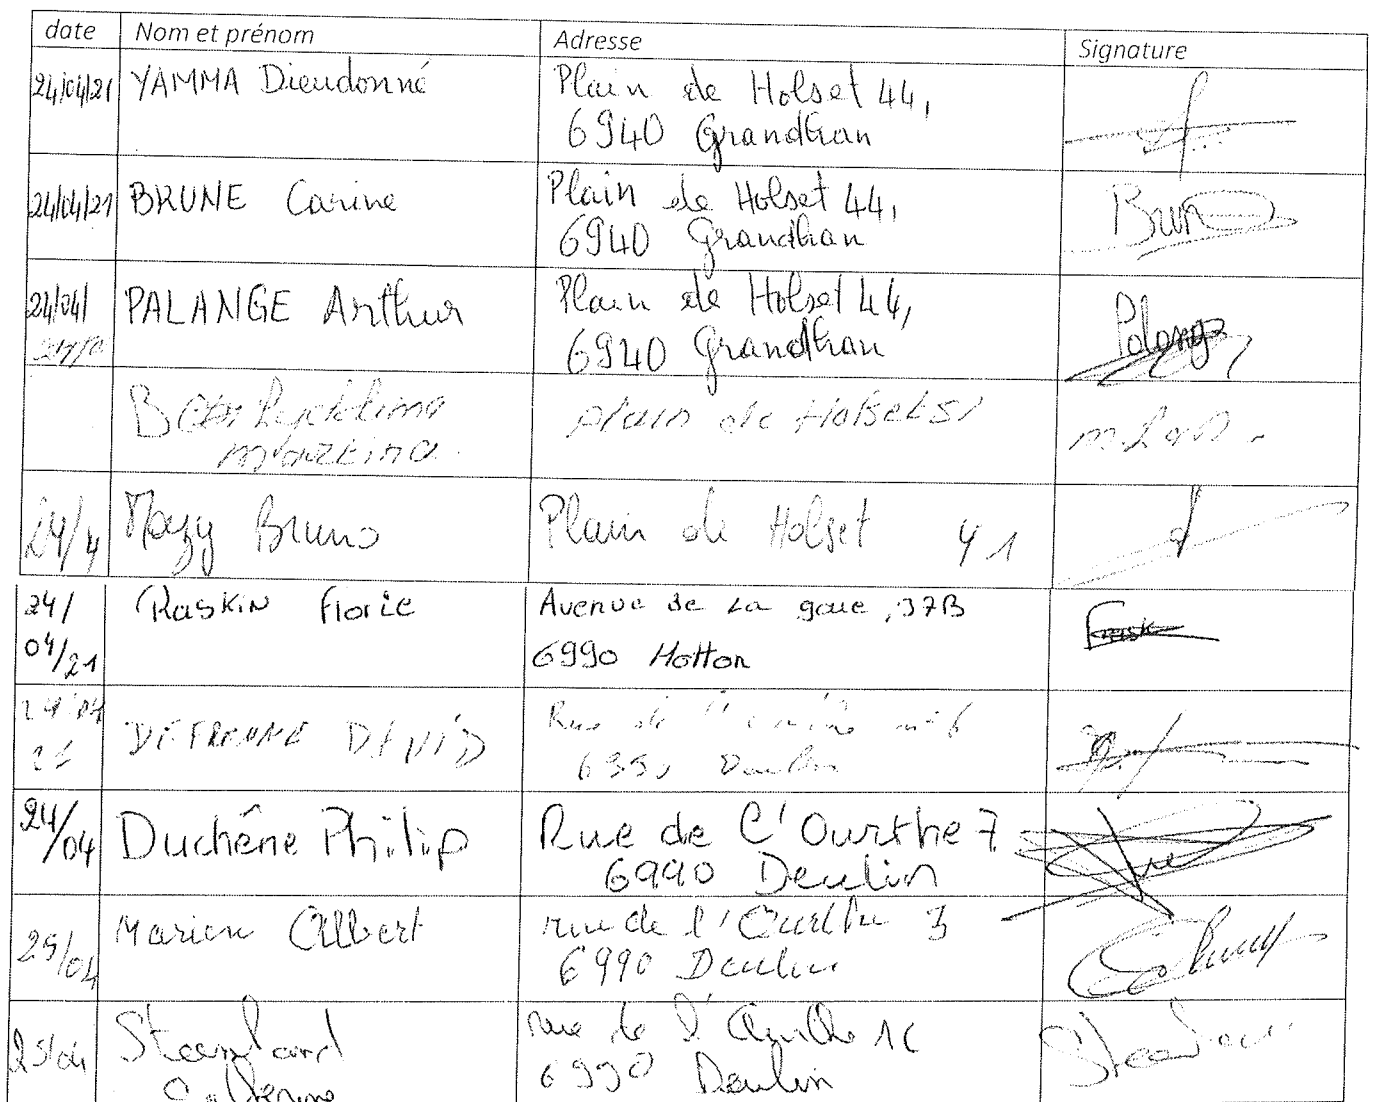 date Nom et prénom Adresse Signature
24/04/21 YAMMA Dieudonné Plain de Holset 44,
6940 Grandhan
24/04/21 BRUNE Carine Plain de Holset 44,
6940 Grandhan
Brun
24/04/ PALANGE Arthur Plain de Holset 44,
6940 Grandhan
Palange
Plain de Holset 51
Martina
24/4 Mazy Bruno Plain de Holset 41
24/ Raskin Florie Avenue de La gare, 37B
04/21 6990 Hotton
24/04 DEFRENNE DAVID Rue de
21 Deulin
24/04 Duchêne Philip Rue de l'Ourthe 7
6990 Deulin
25/04 Marien Albert rue de l'Ourthe 3
6990 Deulin
25/04 rue de l'Ourthe
6990 Deulin